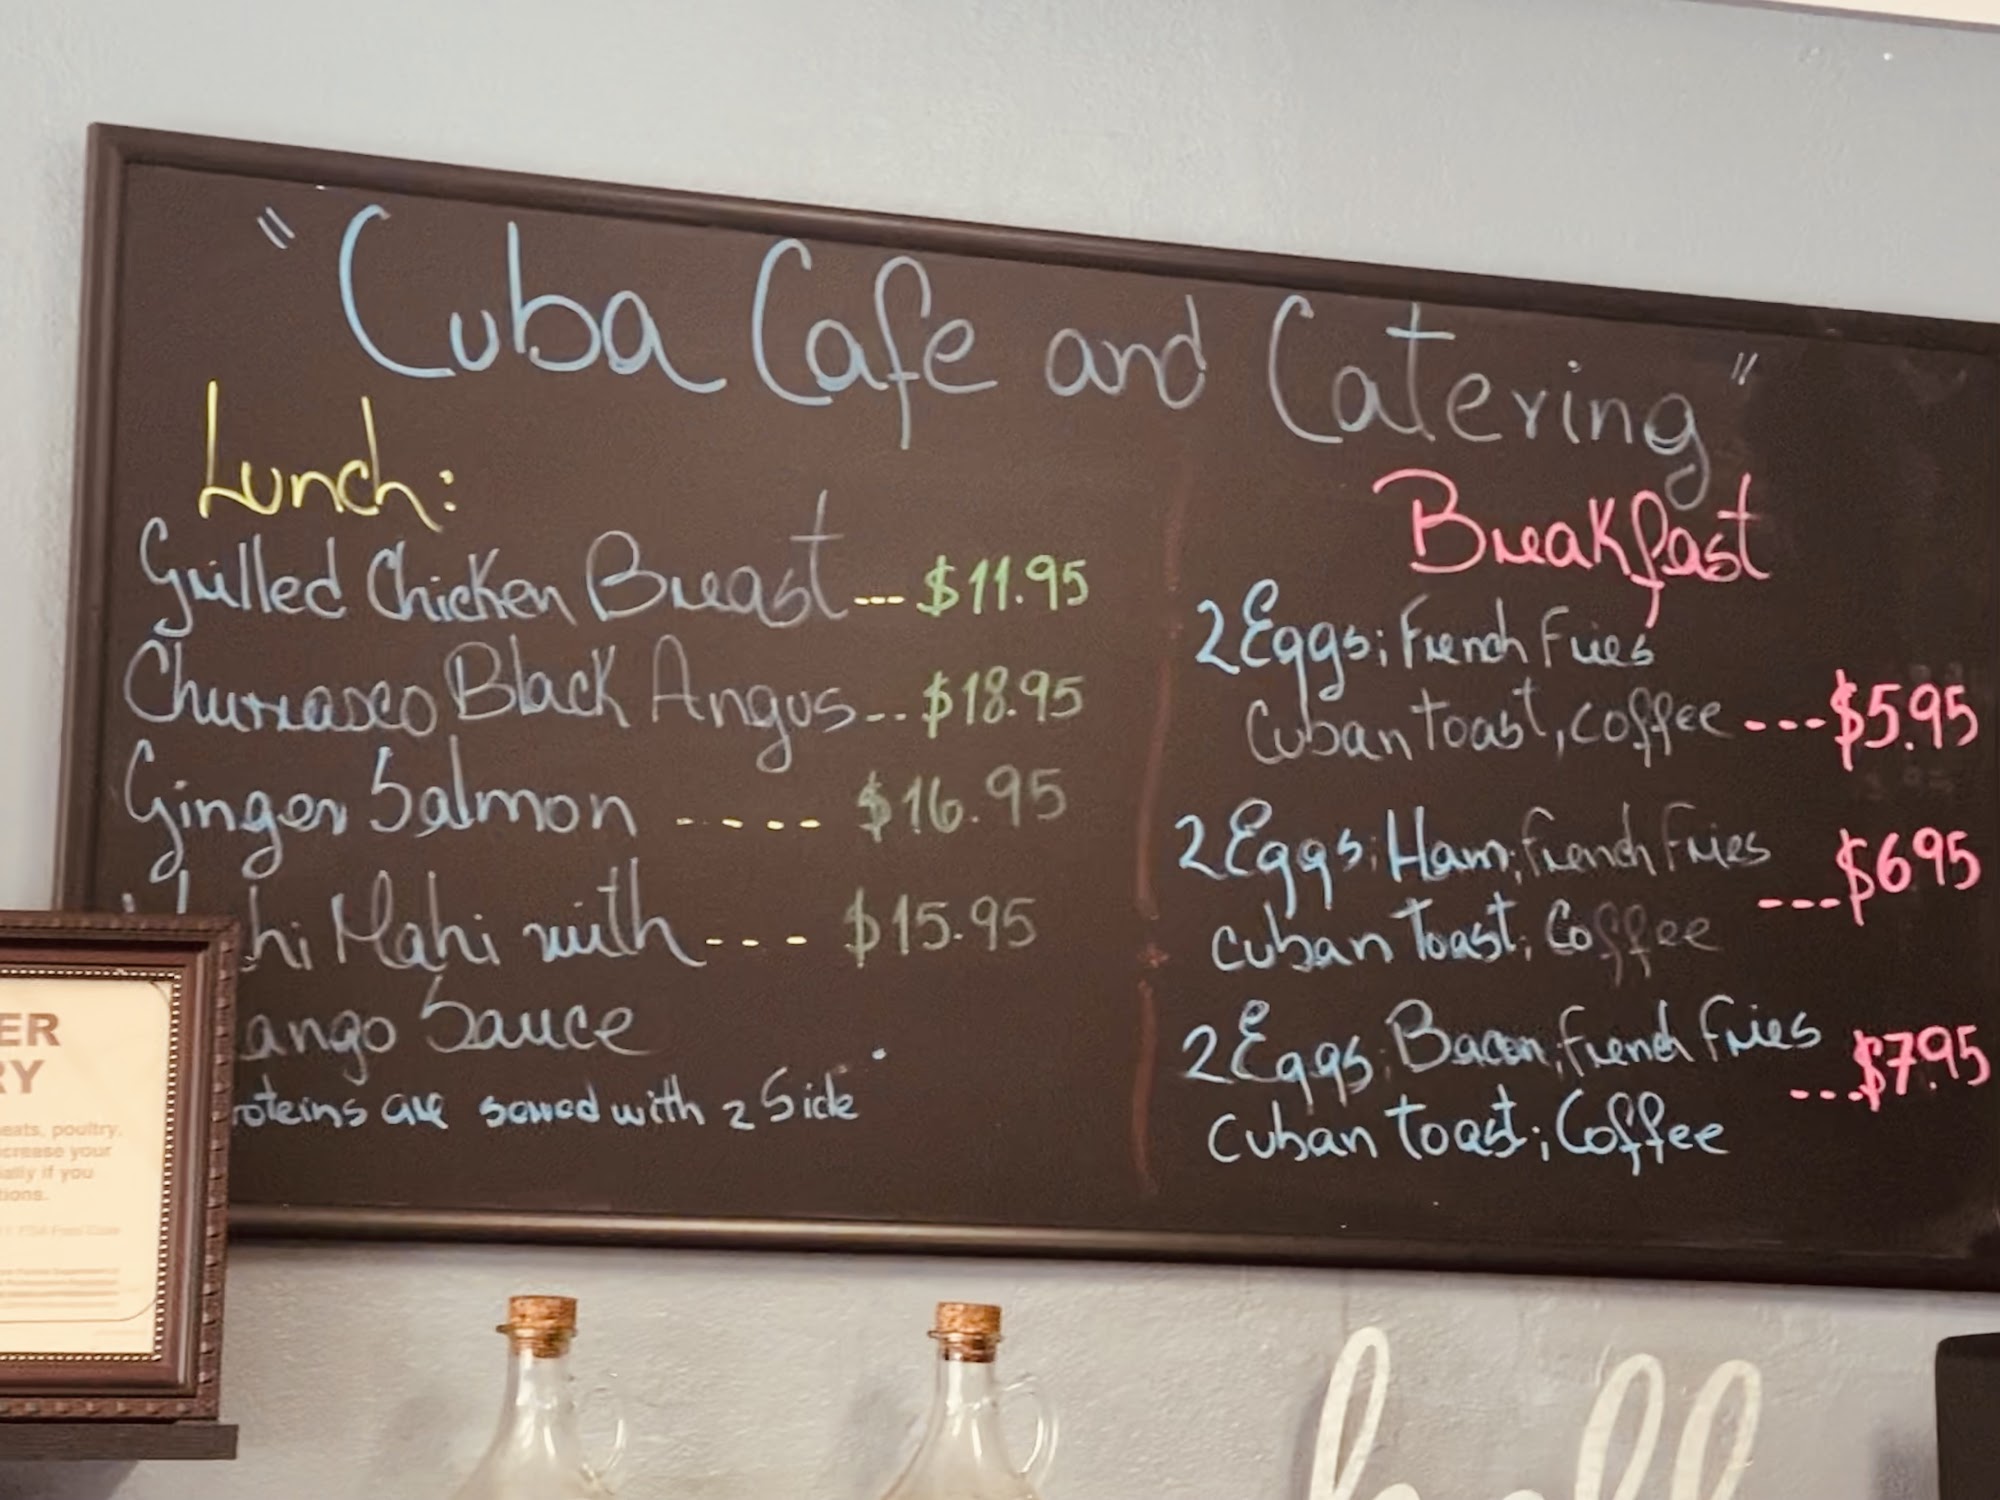 "Cuba Cafe and Catering"
Lunch:
Grilled Chicken Breast --- $11.95
Churrasco Black Angus -- $18.95
Ginger Salmon ---- $16.95
hi Mahi with --- $15.95
ango Sauce
roteins are served with 2 Side
Breakfast
2 Eggs; French Fries
Cuban toast, coffee --- $5.95
2 Eggs; Ham; French Fries
Cuban Toast; Coffee --- $695
2 Eggs; Bacon; French Fries
Cuban Toast; Coffee --- $795
ER
RY
eats, poultry,
crease your
ially if you
tions.